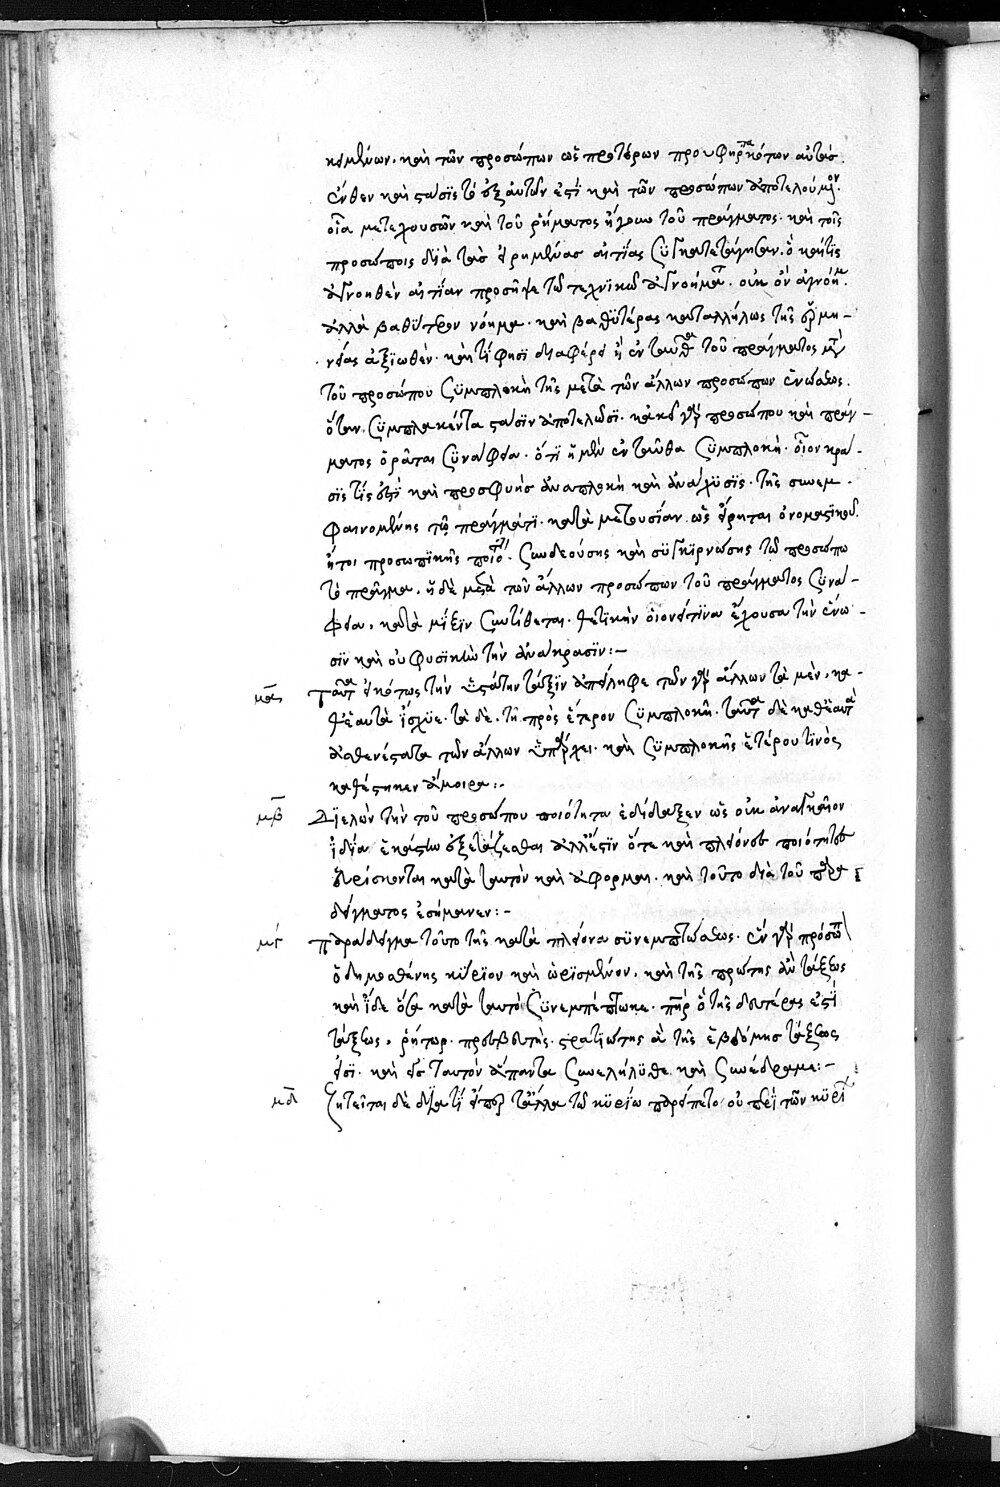 κειμένων. καὶ τῶν προσώπων ὡς προτέρων προυφηρπακότων αὐτάς.
ἔνθεν καὶ στάσις τὸ ἐξ αὐτῶν ἐστὶ καὶ τῶν προσώπων ἀποτελούμενον.
οἷα μετεχουσῶν καὶ τοῦ ῥήματος ἤγουν τοῦ πράγματος. καὶ τοῖς
προσώποις διὰ τὰς εἰρημένας αἰτίας συγκατετάγησαν. ὃ καί τις
ἀγνοηθὲν αἰτίαν προσῆψε τῶ τεχνικῶ ἀγνοήματος. οὐκ ὂν ἀγνόημα.
ἀλλὰ βαθύτερον νόημα. καὶ βαθυτέρας καταλλήλως τῆς ἑρμη-
νείας ἀξιωθέν. καὶ τί φησι διαφέρει ἡ ἐνταῦθα τοῦ πράγματος μετὰ
τοῦ προσώπου συμπλοκὴ τῆς μετὰ τῶν ἄλλων προσώπων ἑνώσεως.
ὅταν συμπλακέντα στάσιν ἀποτελῶσι. κἀκεῖ γὰρ προσώπου καὶ πράγ-
ματος ὁρᾶται συνάφεια. ὅτι ἡ μὲν ἐνταῦθα συμπλοκὴ. οἷον κρᾶ-
σίς τίς ἐστι καὶ προσφυὴς ἀναπλοκὴ καὶ ἀνάχυσις. τῆς συνεμ-
φαινομένης τῶ πράγματι. κατὰ μετουσίαν ὡς εἴρηται ὀνομαστικοῦ
ἤτοι προσωπικῆς ποιότητος. συνδεούσης καὶ συγκιρνώσης τῶ προσώπω
τὸ πρᾶγμα. ἡ δὲ μετὰ τῶν ἄλλων προσώπων τοῦ πράγματος συνά-
φεια, κατὰ μίξιν συντίθεται. θετικὴν οἱονεί τινα ἔχουσα τὴν ἕνω-
σιν καὶ οὐ φυσικὴν τὴν ἀνάκρασιν:-
μα ταῦτα εἰκότως τὴν ἐσχάτην τάξιν ἀπείληφε τῶν γὰρ ἄλλων τὰ μὲν, κα-
θ' ἑαυτὰ ἴσχυε. τὰ δὲ, τῆ πρὸς ἕτερον συμπλοκῆ. ταῦτα δὲ καθ' ἑαυτὰ
ἀσθενέστατα τῶν ἄλλων ὑπάρχει. καὶ συμπλοκῆς ἑτέρου τινὸς
καθέστηκεν ἄμοιρα:-
μβ Διελὼν τὴν τοῦ προσώπου ποιότητα ἐδίδαξεν ὡς οὐκ ἀναγκαῖον
ἰδία ἑκάστω ἐξετάζεσθαι ἀλλ' ἔστιν ὅτε καὶ πλείονες ποιότητες
εὑρίσκονται κατὰ ταυτὸν καὶ ἀφορμαι. καὶ τοῦτο διὰ τοῦ παρα
δείγματος ἐσήμανεν:-
μγ παράδειγμα τοῦτο τῆς κατὰ πλείονα συνεμπτώσεως. ἓν γὰρ πρόσωπον
ὁ δημοσθένης κύριον καὶ ὡρισμένον. καὶ τῆς πρώτης ὂν τάξεως
καὶ ἴδε ὅσα κατὰ ταυτὸ συνεμπέπτωκε. πατὴρ ὃ τῆς δευτέρας ἐστὶ
τάξεως, ῥήτωρ. πρεσβευτής. στρατιώτης ἃ τῆς ἑβδόμης τάξεώς
εἰσι. καὶ εἰς ταυτὸν ἅπαντα συνελήλυθε καὶ συνέδραμε:-
μδ ζητεῖται δὲ διατί εἴπερ τἄλλα τῶ κυρίω παρείπετο οὐ περὶ τῶν κυρίων